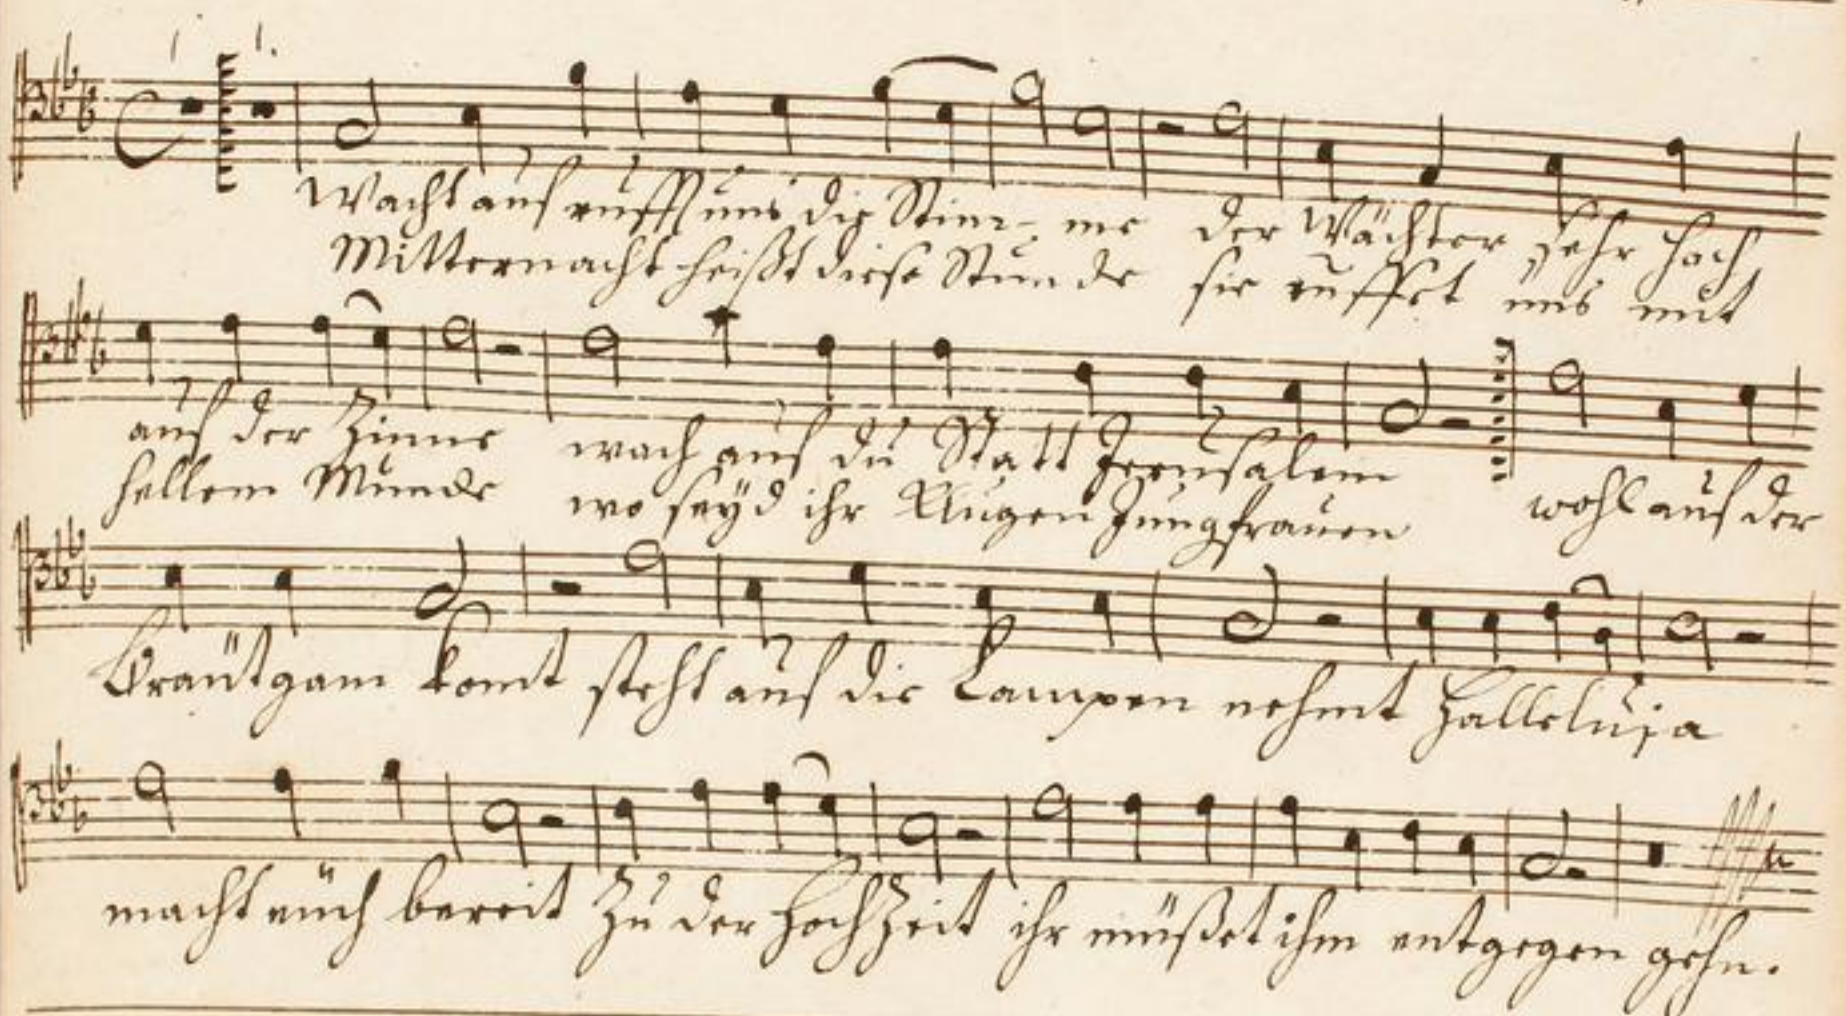 1 1.
Wacht auf rufft uns die Stim- me der Wächter sehr hoch
Mitternacht heißt diese Stunde sie ruffet uns mit
auf der Zinne wach auf du Statt Jerusalem
hellem Munde wo seyd ihr Klugen Jungfrauen wohl auf der
Bräutgam komt steht auf die Lampen nehmt Halleluja
macht euch bereit Zu der HochZeit ihr müßet ihm entgegen gehn.